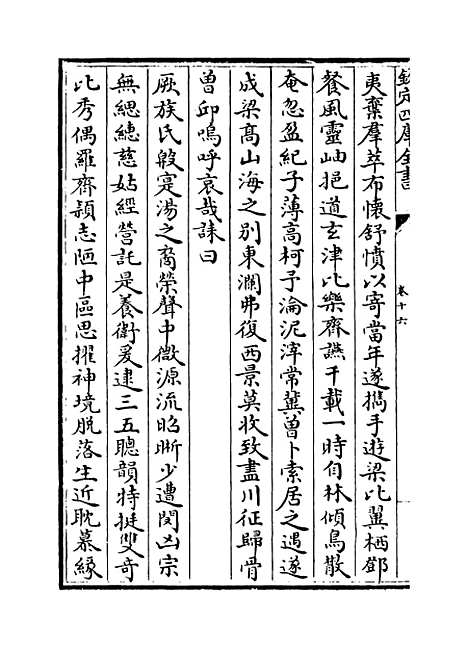 欽定四庫全書
卷十六
夷棄羣萃布懷舒憤以寄當年遂㩦手遊梁比翼栖鄧
餐風靈岫挹道玄津比樂齊讌千載一時自林傾鳥散
奄忽盈紀子薄高柯予淪泥滓常冀曽卜索居之遇遂
成梁髙山海之别東瀾弗復西景莫收致盡川征歸骨
曽邱嗚呼哀哉誄曰
厥族氏毅寔湯之裔榮聲中微源流昭晰少遭閔凶宗
無緦緦慈姑經營託是養衛爰逮三五聰韻特挺雙奇
比秀偶羅齊頴志陋中區思擢神境脱落生近耽慕縁